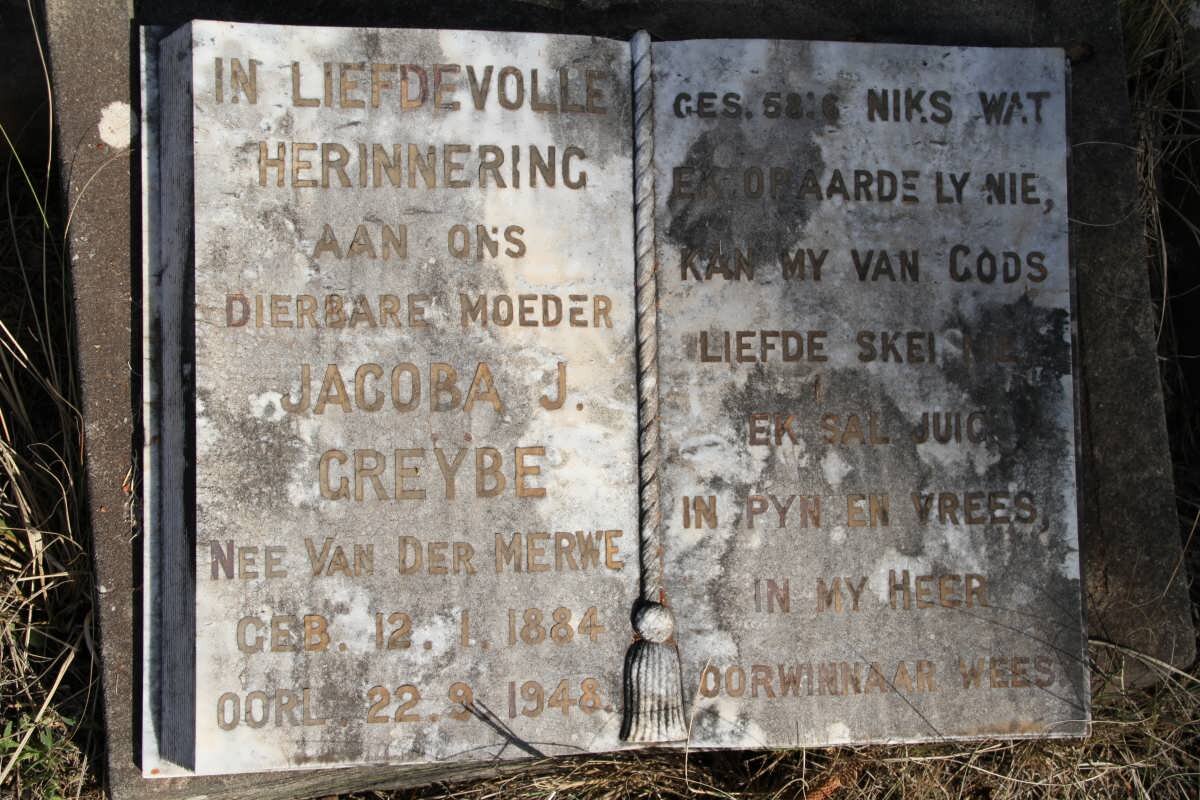 IN LIEFDEVOLLE
HERINNERING
AAN ONS
DIERBARE MOEDER
JACOBA J.
GREYBE
NEE VAN DER MERWE
GEB. 12.1.1884
OORL. 22.9.1948.
GES. 58:6 NIKS WAT
EK OP AARDE LY NIE,
KAN MY VAN GODS
LIEFDE SKEI NIE
EK SAL JUIG
IN PYN EN VREES,
IN MY HEER
OORWINNAAR WEES